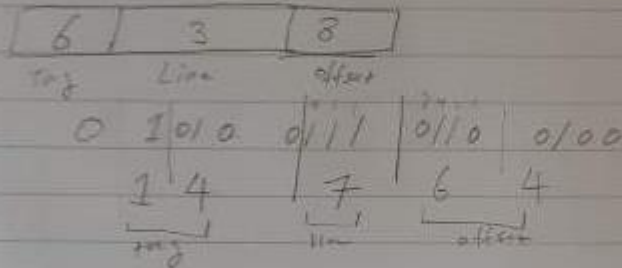 6 3 8
Tag Line offset
0 1 010 0111 0110 0100
1 4 7 6 4
tag line offset